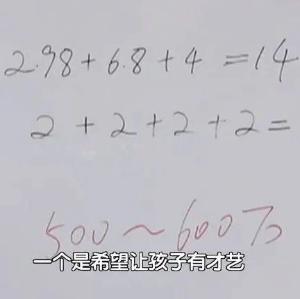 2.98+6.8+4=14
2+2+2+2=
500~600万
一个是希望让孩子有才艺